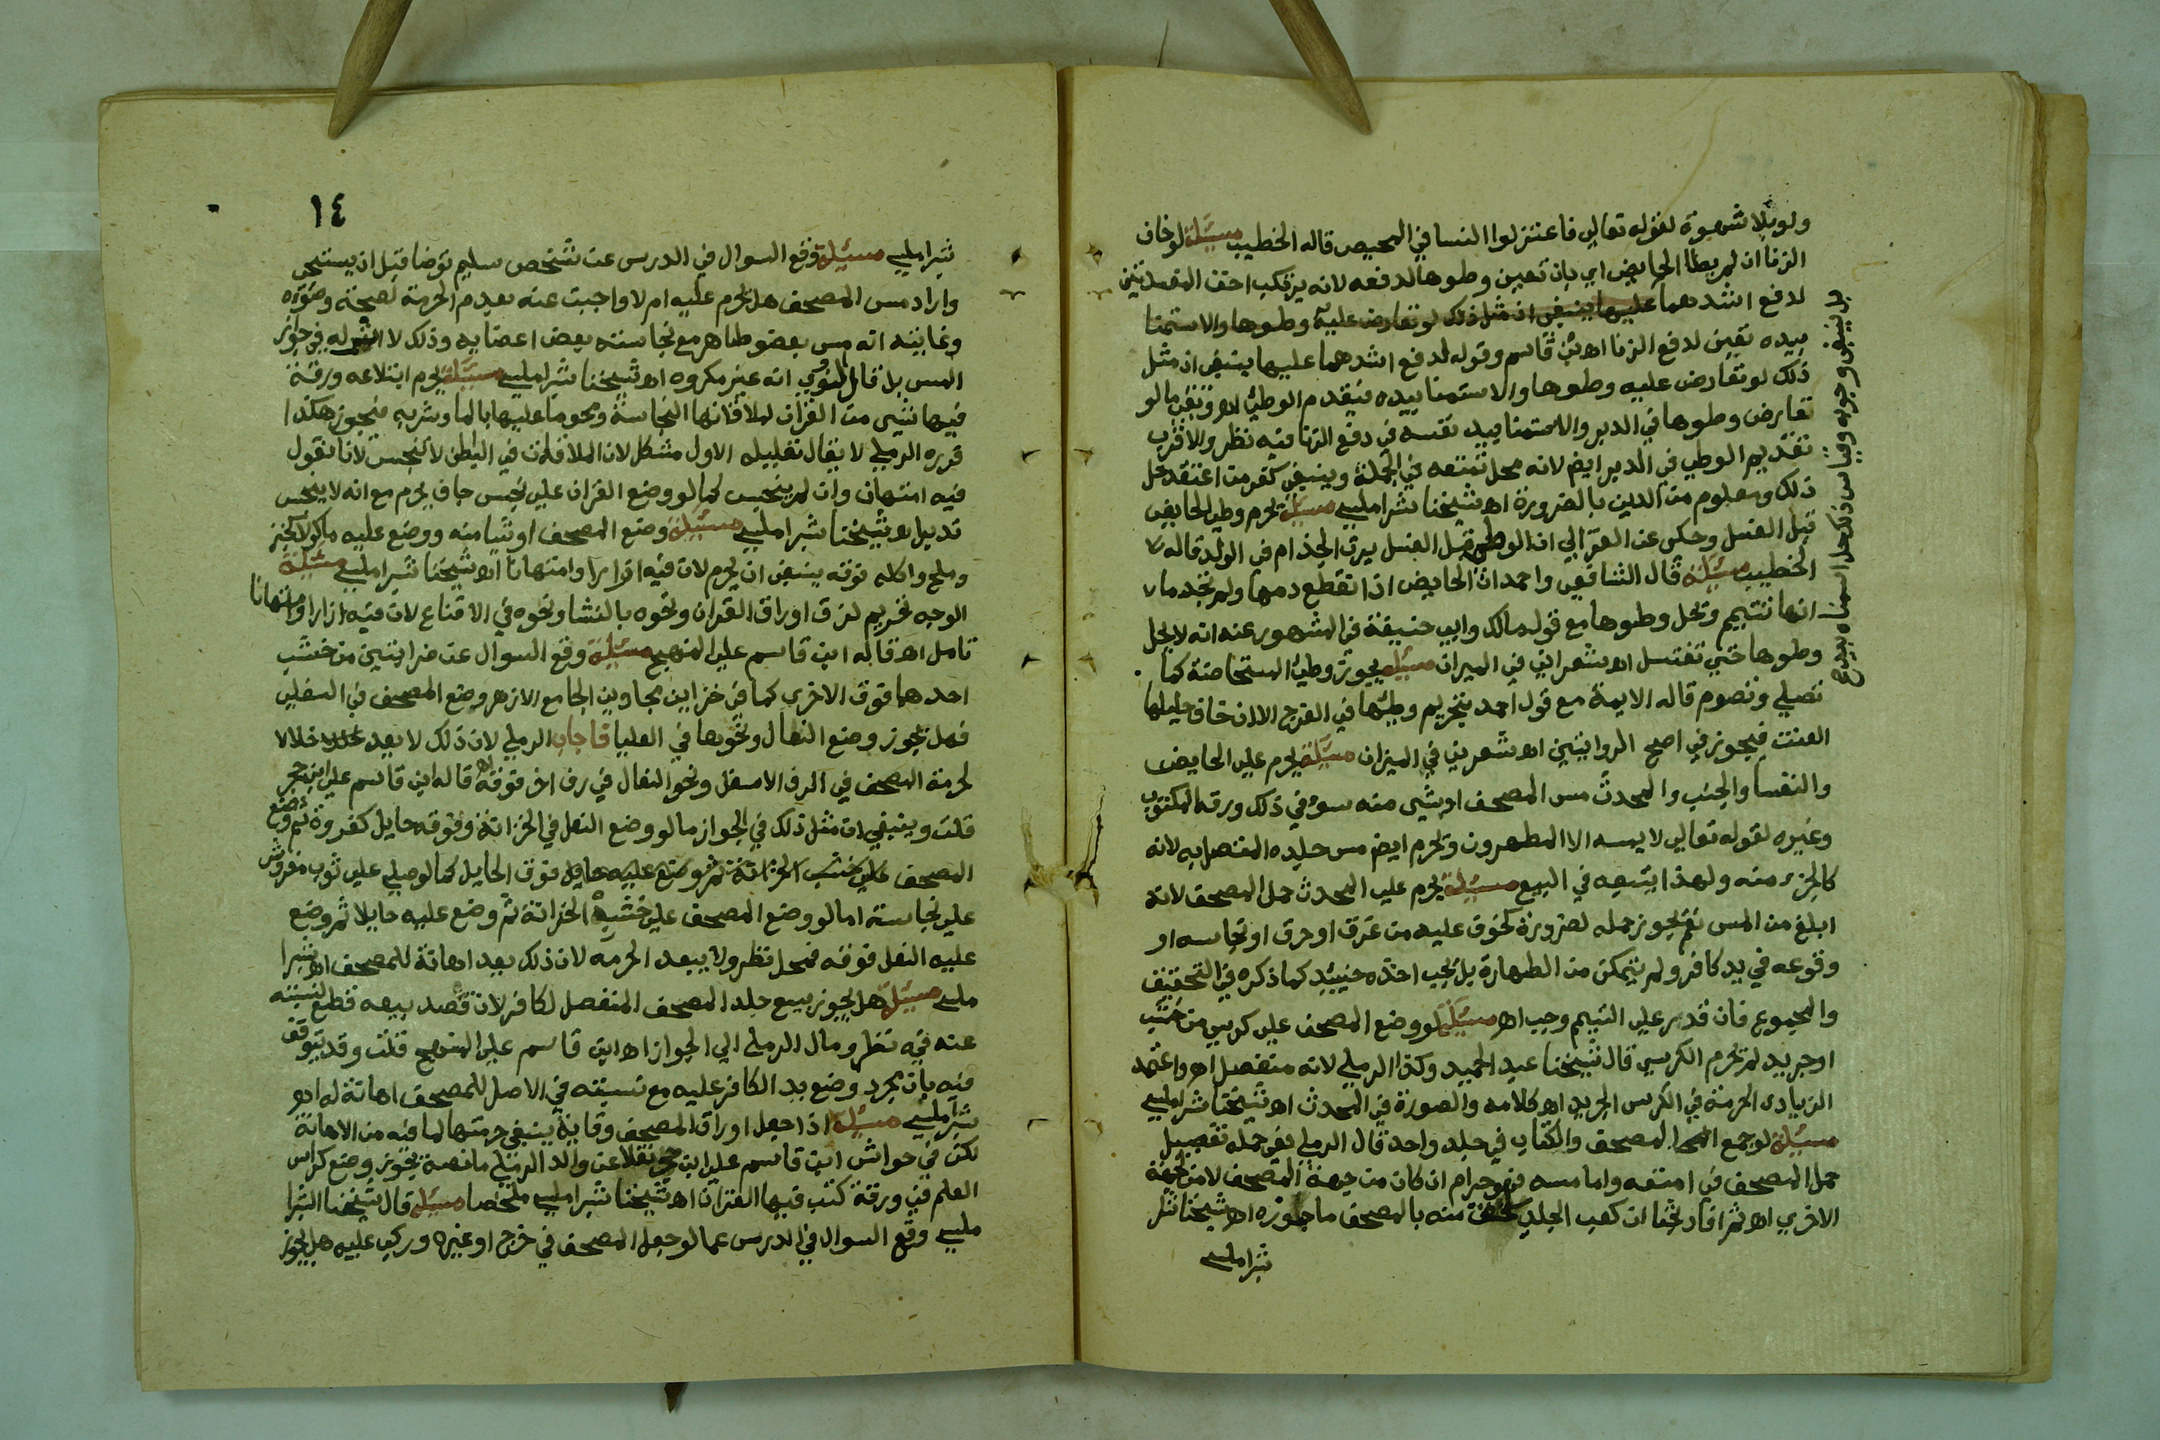 ولو بلا شهوة لقوله تعالى فاعتزلوا النسا في المحيض قاله الخطيب مسئلة لو خاف
الزنا ان لم يطا الحايض اي بان تعين وطوها لدفعه لانه يرتكب اخف المفسدتين
لدفع اشدهما عليها ينبغي ان مثل ذلك لو تعارض عليه وطوها والاستمنا
بيده تعين لدفع الزنا اه ابن قاسم وقوله لدفع اشدهما عليها ينبغي ان مثل
ذلك لو تعارض عليه وطوها والاستمنا بيده فيقدم الوطئ اه وبقي ما لو
تعارض وطوها في الدبر والاستمنا بيد نفسه في دفع الزنا فيه نظر والاقرب
تقديم الوطي في الدبر ايضا لانه محل تمتعه في الجملة وينبغي كفر من اعتقد حل
ذلك ومعلوم من الدين بالضرورة اه شيخنا شبراملسي مسئلة يحرم وطي الحايض
قبل الغسل وحكي عن الغزالي ان الوطي قبل الغسل يورث الجذام في الولد قاله
الخطيب مسئلة قال الشافعي واحمد ان الحايض اذا انقطع دمها ولم تجد ما
انها تتيمم وتحل وطوها مع قول مالك وابي حنيفة في المشهور عنه انه لا يحل
وطوها حتي تغتسل اه شعراني في الميزان مسئلة يجوز وطئ المستحاضة كما
تصلي وتصوم قاله الايمة مع قول احمد بتحريم وطئها في الفرج الا ان خاف حليلها
العنت فيجوز في اصح الروايتين اه شعرين في الميزان مسئلة يحرم على الحايض
والنفسا والجنب والمحدث مس المصحف او شي منه سوء في ذلك ورقه المكتوب
وغيره لقوله تعالى لا يمسه الا المطهرون ويحرم ايضا مس جلده المتصل به لانه
كالجزء منه ولهذا يتبعه في البيع مسئلة يحرم علي المحدث حمل المصحف لانه
ابلغ من المس نعم يجوز حمله لضرورة كخوف عليه من غرق او حرق او نجاسه او
وقوعه في يد كافر ولم يتمكن من الطهارة بل يجب اخذه حينئذ كما ذكره في التحقيق
والمجموع فان قدر علي التيمم وجب اه مسئلة لو وضع المصحف علي كرسي من خشب
او جريد لم يحرم الكرسي قال شيخنا عبد الحميد وكذا الرملي لانه منفصل اه واعتمد
الزيادي الحرمة في الكرسي الجريد اه كلامه والصورة في المحدث اه شيخنا شبراملسي
مسئلة لو جمع المصحف والكتاب في جلد واحد قال الرملي ففي حمله تفصيل
حمل المصحف في امتعه واما مسه فهو حرام ان كان من جهة المصحف لا من الجهة
الاخري اه ثم افاد شيخنا ان كعب الجلد منه بالمصحف ما جاوزه اه شيخنا شبر
شبراملسي
بل ينبغي وجوبه وقياس ذلك حل استمنائه بيده ع
١٤
شبراملسي مسئلة وقع السوال في الدرس عن شخص سليم توضا قبل ان يستنجي
واراد مس المصحف هل يحرم عليه ام لا واجبت عنه بعدم الحرمة لصحة وضوءه
وغايته انه مس بعضو طاهر مع نجاسته بعض اعضايه وذلك لا اثر له في جواز
المس بل قال النووي انه غير مكروه اه شيخنا شبراملسي مسئلة يحرم ابتلاعه ورقة
فيها شي من القران لملاقاتها النجاسة ومحوما عليها بالما وشربه فيجوز هكذا
قرره الرملي لا يقال تعليله الاول مشكل لان الملاقاة في الباطن لا تنجس لانا نقول
فيه امتهان وان لم ينجس كما لو وضع القران علي نجس جاف يحرم مع انه لا ينجس
تدبيل اه شيخنا شبراملسي مسئلة وضع المصحف او شيا منه ووضع عليه ماكولا كخبز
وملح واكله فوقه ينبغي ان يحرم لان فيه ازرا وامتهانا اه شيخنا شبراملسي مسئلة
الوجه تحريم لزق اوراق القران ونحوه بالنشا ونحوه في الاقناع لان فيه ازرارا وامتهانا
تامل اه قاله ابن قاسم علي المنهج مسئلة وقع السوال عن خزانتين من خشب
احدهما فوق الاخري كما في خزاين مجاورين الجامع الازهر وضع المصحف في السفلي
فهل يجوز وضع النعال ونحوها في العليا فاجاب الرملي لان ذلك لا يعد اخلالا
لحرمة المصحف في الرف الاسفل ونحو النعال في رف اخر فوقه اه قاله ابن قاسم علي ابن حجر
قلت وينبغي ان مثل ذلك في الجواز ما لو وضع النعل في الخزانة وفوقه حايل كفروة ثم وضع
المصحف علي خشب الخزانة ثم وضع عليه حايل فوق الحايل كما لو صلي علي ثوب مفروش
علي نجاسة اما لو وضع المصحف علي خشبة الخزانة ثم وضع عليه حايلا ثم وضع
عليه النعل فوقه فمحل نظر ولا يبعد الحرمه لان ذلك يعد اهانة للمصحف اه شبرا
ملسي مسئلة هل يجوز بيع جلد المصحف المنفصل لكافر لان قصد بيعه قطع لنسبته
عنه فيه نظر ومال الرملي الي الجواز اه ابن قاسم علي المنهج قلت وقد يتوقف
فيه بان مجرد وضع يد الكافر عليه مع نسبته في الاصل للمصحف اهانة له اه
شبراملسي مسئلة اذا جعل اوراق المصحف وقاية ينبغي حرمتها لما فيه من الاهانة
لكن في حواشي ابن قاسم علي ابن حجر نقلا عن والد الرملي ما نصه يجوز وضع كراس
العلم في ورقة كتب فيها القران اه شيخنا شبراملسي ملخصا مسئلة قال شيخنا الشبرا
ملسي وقع السوال في الدرس عما لو جعل المصحف في خرج او غيره وركب عليه هل يجوز